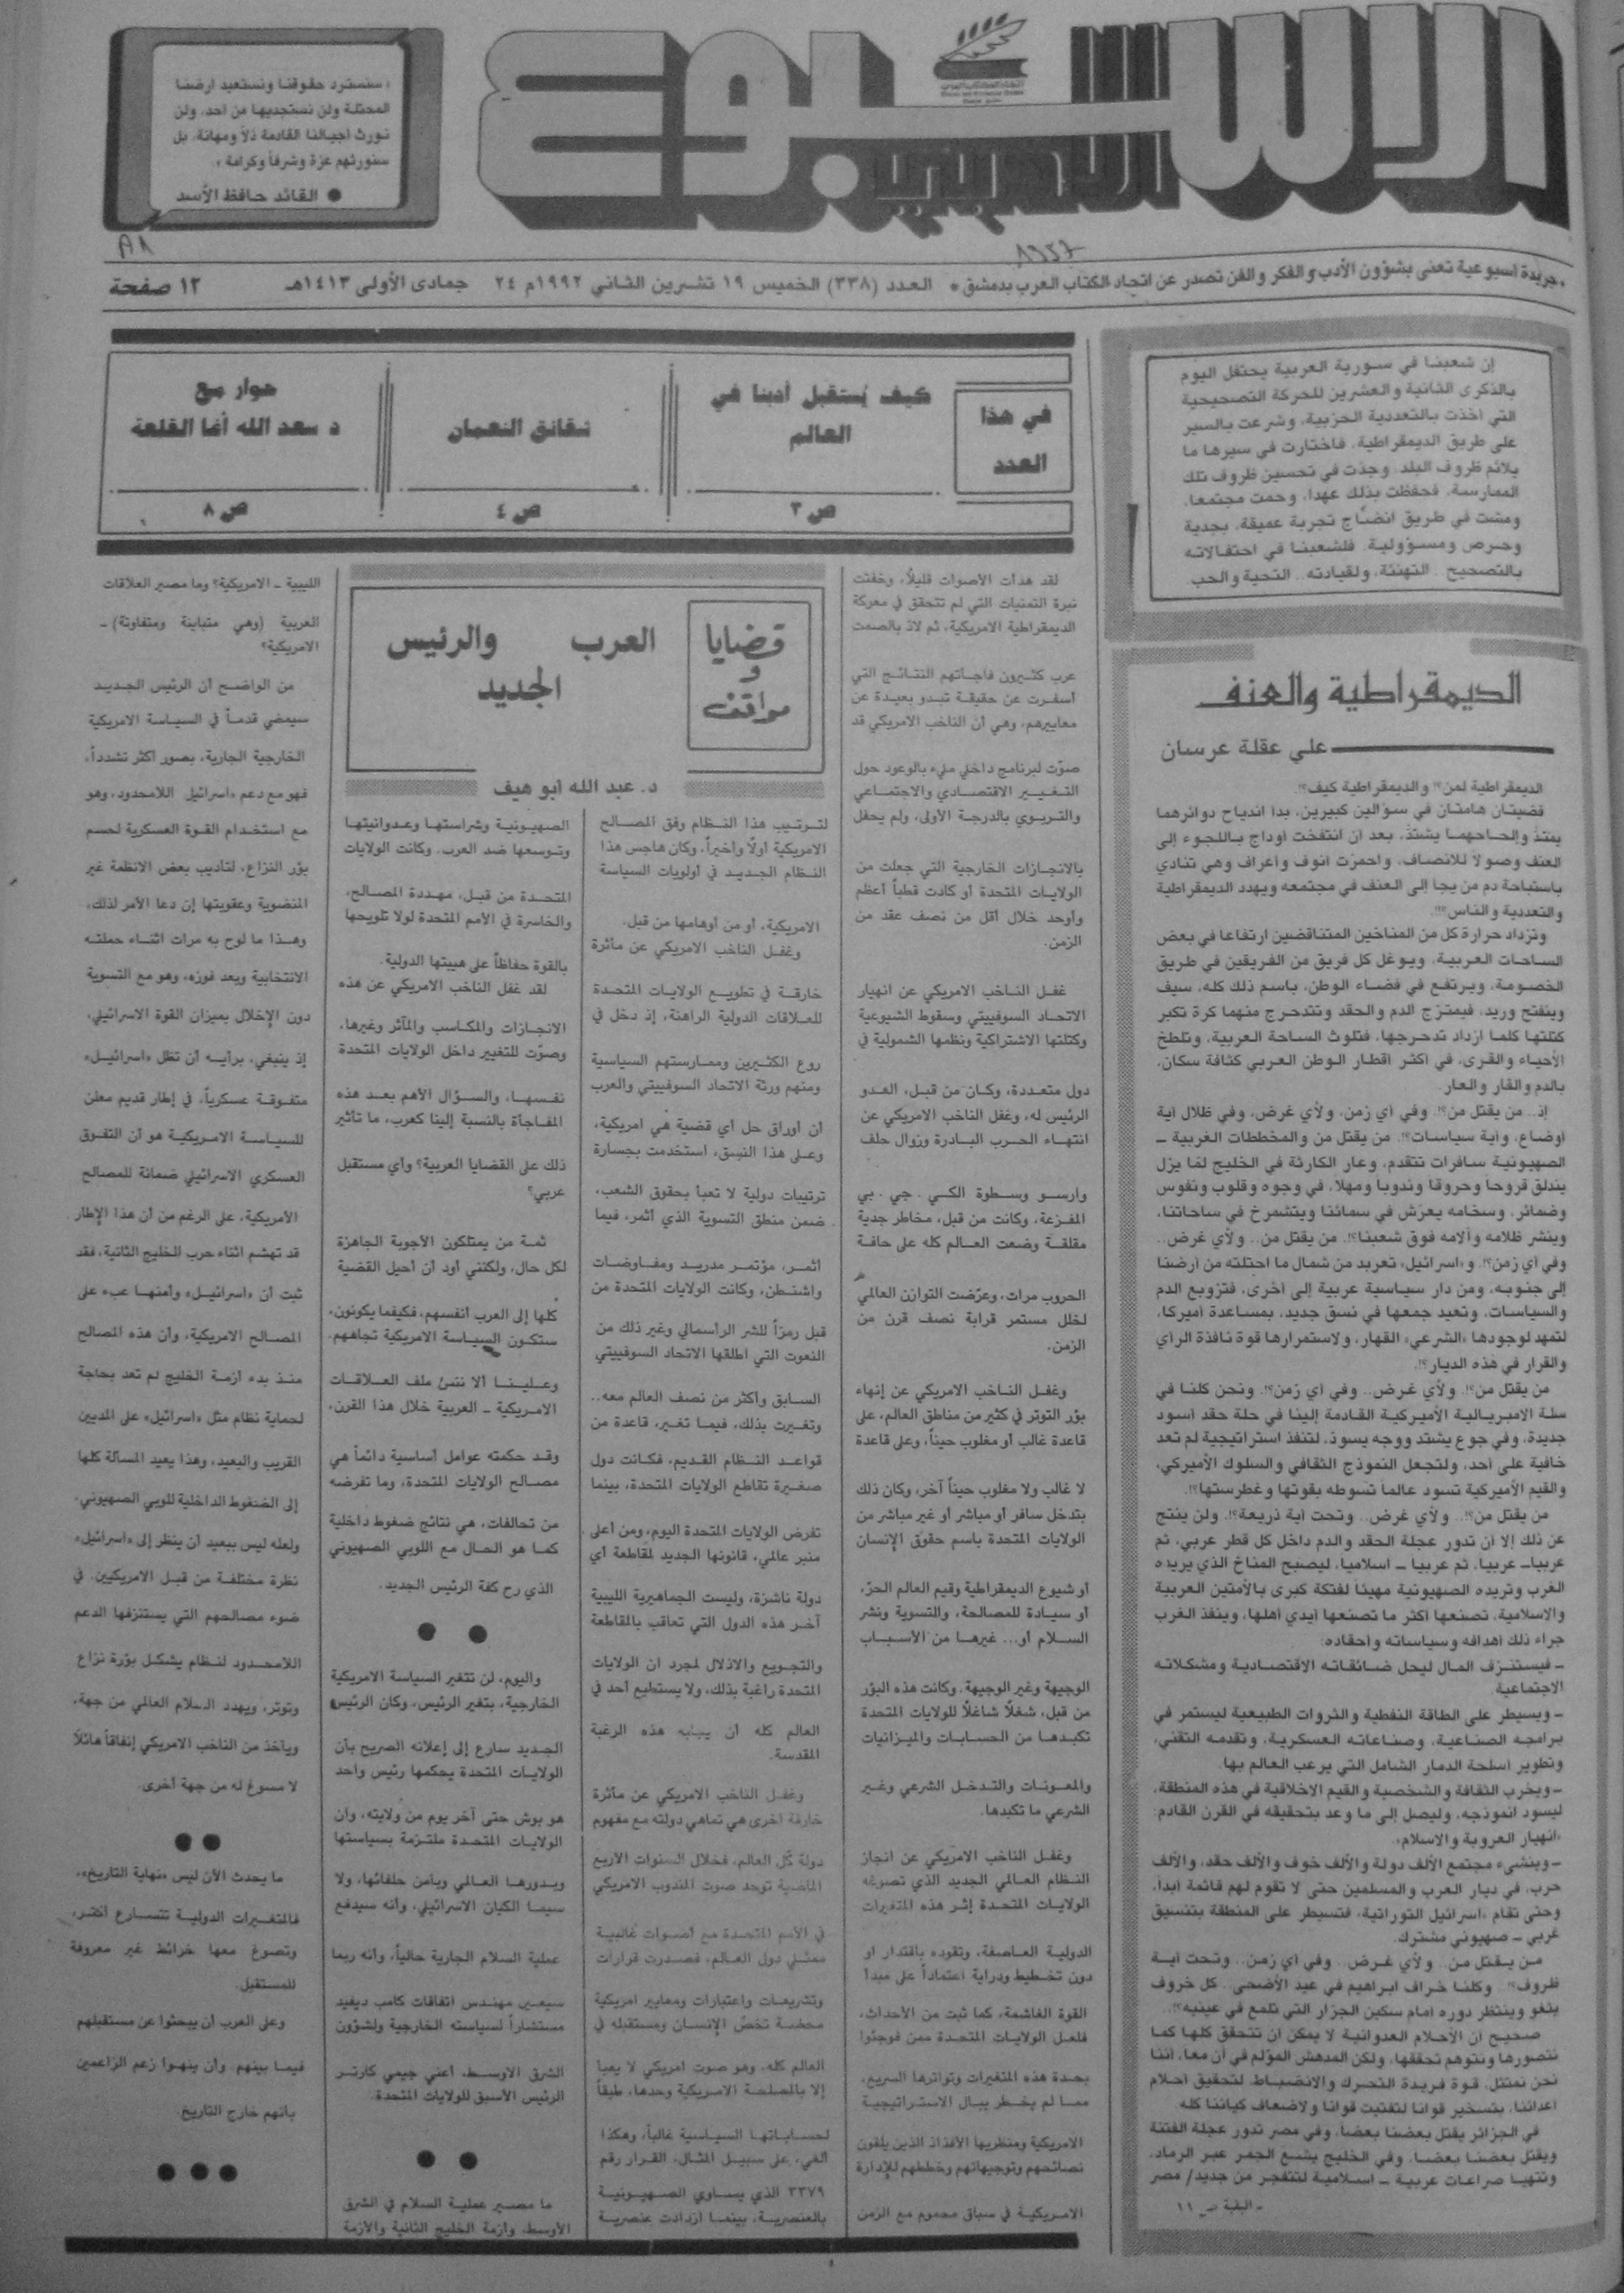 الأسبوع الأدبي
« سنسترد حقوقنا ونستعيد أرضنا
المحتلة ولن نستجديها من أحد، ولن
نورث أجيالنا القادمة ذلاً ومهانة، بل
سنورثهم عزة وشرفاً وكرامة »
● القائد حافظ الأسد
جريدة أسبوعية تعنى بشؤون الأدب والفكر والفن تصدر عن اتحاد الكتاب العرب بدمشق * العدد (٣٣٨) الخميس ١٩ تشرين الثاني ١٩٩٢م ٢٤ جمادى الأولى ١٤١٣هـ ١٢ صفحة
إن شعبنا في سورية العربية يحتفل اليوم
بالذكرى الثانية والعشرين للحركة التصحيحية
التي أخذت بالتعددية الحزبية، وشرعت بالسير
على طريق الديمقراطية، فاختارت في سيرها ما
يلائم ظروف البلد، وجدت في تحسين ظروف تلك
الممارسة، فحفظت بذلك عهداً، وحمت مجتمعاً،
ومشت في طريق انضاج تجربة عميقة، بجدية
وحرص ومسؤولية. فلشعبنا في احتفالاته
بالتصحيح.. التهنئة، ولقيادته.. التحية والحب.
في هذا
العدد
كيف يُستقبل أدبنا في
العالم
ص ٣
شقائق النعمان
ص ٤
حوار مع
د سعد الله أغا القلعة
ص ٨
الديمقراطية والعنف
علي عقلة عرسان
الديمقراطية لمن؟! والديمقراطية كيف؟!.
قضيتان هامتان في سؤالين كبيرين، بدأ اندياح دوائرهما
يمتدّ وإلحاحهما يشتدّ، بعد أن انتفخت أوداج باللجوء إلى
العنف وصولاً للانصاف، واحمرّت أنوف وأعراف وهي تنادي
باستباحة دم من يلجأ إلى العنف في مجتمعه ويهدد الديمقراطية
والتعددية والناس؟!!.
وتزداد حرارة كل من المناخين المتناقضين ارتفاعاً في بعض
الساحات العربية، ويوغل كل فريق من الفريقين في طريق
الخصومة، ويرتفع في فضاء الوطن، باسم ذلك كله، سيف
وينفتح وريد، فيمتزج الدم والحقد وتتدحرج منهما كرة تكبر
كتلتها كلما ازداد تدحرجها، فتلوث الساحة العربية، وتلطخ
الأحياء والقرى، في أكثر أقطار الوطن العربي كثافة سكان،
بالدم والقار والعار.
إذ.. من يقتل من؟!. وفي أي زمن، ولأي غرض، وفي ظلال أية
أوضاع، وأية سياسات؟!. من يقتل من والمخططات الغربية ـ
الصهيونية سافرات تتقدم، وعار الكارثة في الخليج لمّا يزل
يندلق قروحاً وحروقاً وندوباً ومهلاً، في وجوه وقلوب ونفوس
وضمائر، وسخامه يعرّش في سمائنا ويتشمرخ في ساحاتنا،
وينشر ظلامه وآلامه فوق شعبنا؟!. من يقتل من.. ولأي غرض..
وفي أي زمن؟!. و«اسرائيل» تعربد من شمال ما احتلته من أرضنا
إلى جنوبه، ومن دار سياسية عربية إلى أخرى، فتزوبع الدم
والسياسات، وتعيد جمعها في نسق جديد، بمساعدة أميركا،
لتمهد لوجودها «الشرعي» القهار، ولاستمرارها قوة نافذة الرأي
والقرار في هذه الديار؟!.
من يقتل من؟!. ولأي غرض.. وفي أي زمن؟!. ونحن كلنا في
سلة الامبريالية الأميركية القادمة إلينا في حلة حقد أسود
جديدة، وفي جوع يشتد ووجه يسودّ، لتنفذ استراتيجية لم تعد
خافية على أحد، ولتجعل النموذج الثقافي والسلوك الأميركي،
والقيم الأميركية تسود عالماً تسوطه بقوتها وغطرستها؟!.
من يقتل من؟!.. ولأي غرض.. وتحت أية ذريعة؟!. ولن ينتج
عن ذلك إلا أن تدور عجلة الحقد والدم داخل كل قطر عربي، ثم
عربياً ـ عربياً، ثم عربياً ـ اسلامياً، ليصبح المناخ الذي يريده
الغرب وتريده الصهيونية مهيئاً لفتكة كبرى بالأمتين العربية
والاسلامية، تصنعها أكثر ما تصنعها أيدي أهلها، وينفذ الغرب
جراء ذلك أهدافه وسياساته وأحقاده:
ـ فيستنزف المال ليحل ضائقاته الاقتصادية ومشكلاته
الاجتماعية.
ـ ويسيطر على الطاقة النفطية والثروات الطبيعية ليستمر في
برامجه الصناعية، وصناعاته العسكرية، وتقدمه التقني،
وتطوير أسلحة الدمار الشامل التي يرعب العالم بها.
ـ ويخرب الثقافة والشخصية والقيم الأخلاقية في هذه المنطقة،
ليسود أنموذجه، وليصل إلى ما وعد بتحقيقه في القرن القادم:
«انهيار العروبة والاسلام».
ـ وينشيء مجتمع الألف دولة والألف خوف والألف حقد، والألف
حرب، في ديار العرب والمسلمين حتى لا تقوم لهم قائمة أبداً،
وحتى تقام «اسرائيل التوراتية» فتسيطر على المنطقة بتنسيق
غربي ـ صهيوني مشترك.
من يقتل من.. ولأي غرض.. وفي أي زمن.. وتحت أية
ظروف؟!. وكلنا خراف ابراهيم في عيد الأضحى.. كل خروف
يثغو وينتظر دوره أمام سكين الجزار التي تلمع في عينيه؟!..
صحيح أن الأحلام العدوانية لا يمكن أن تتحقق كلها كما
نتصورها ونتوهم تحققها، ولكن المدهش المؤلم في آن معاً، أننا
نحن نمتثل، قوة فريدة التحرك والانضباط، لتحقيق أحلام
أعدائنا، بتسخير قوانا لتفتيت قوانا ولاضعاف كياننا كله.
في الجزائر يقتل بعضنا بعضاً، وفي مصر تدور عجلة الفتنة
ويقتل بعضنا بعضاً، وفي الخليج يشع الجمر عبر الرماد،
وتتهيأ صراعات عربية ـ اسلامية لتتفجر من جديد/ مصر
ـ البقية ص ١١
قضايا
و
مواقف
العرب والرئيس
الجديد
د. عبد الله أبو هيف
لقد هدأت الأصوات قليلاً، وخفتت
نبرة التمنيات التي لم تتحقق في معركة
الديمقراطية الامريكية، ثم لاذ بالصمت
عرب كثيرون فاجأتهم النتائج التي
أسفرت عن حقيقة تبدو بعيدة عن
معاييرهم، وهي أن الناخب الامريكي قد
صوّت لبرنامج داخلي مليء بالوعود حول
التغيير الاقتصادي والاجتماعي
والتربوي بالدرجة الأولى، ولم يحفل
بالانجازات الخارجية التي جعلت من
الولايات المتحدة أو كادت قطباً أعظم
وأوحد خلال أقل من نصف عقد من
الزمن.
غفل الناخب الامريكي عن انهيار
الاتحاد السوفييتي وسقوط الشيوعية
وكتلتها الاشتراكية ونظمها الشمولية في
دول متعددة، وكان من قبل، العدو
الرئيس له، وغفل الناخب الامريكي عن
انتهاء الحرب الباردة وزوال حلف
وارسو وسطوة الكي. جي. بي
المفزعة، وكانت من قبل، مخاطر جدية
مقلقة وضعت العالم كله على حافة
الحروب مرات، وعرّضت التوازن العالمي
لخلل مستمر قرابة نصف قرن من
الزمن.
وغفل الناخب الامريكي عن إنهاء
بؤر التوتر في كثير من مناطق العالم، على
قاعدة غالب أو مغلوب حيناً، وعلى قاعدة
لا غالب ولا مغلوب حيناً آخر، وكان ذلك
بتدخل سافر أو مباشر أو غير مباشر من
الولايات المتحدة باسم حقوق الإنسان
أو شيوع الديمقراطية وقيم العالم الحرّ،
أو سيادة للمصالحة، والتسوية ونشر
السلام أو... غيرها من الأسباب
الوجيهة وغير الوجيهة. وكانت هذه البؤر
من قبل، شغلاً شاغلاً للولايات المتحدة
تكبدها من الحسابات والميزانيات
والمعونات والتدخل الشرعي وغير
الشرعي ما تكبدها.
وغفل الناخب الامريكي عن انجاز
النظام العالمي الجديد الذي تصوغه
الولايات المتحدة إثر هذه المتغيرات
الدولية العاصفة، وتقوده باقتدار أو
دون تخطيط ودراية اعتماداً على مبدأ
القوة الغاشمة، كما ثبت من الأحداث،
فلعل الولايات المتحدة ممن فوجئوا
بحدة هذه المتغيرات وتواترها السريع،
مما لم يخطر ببال الاستراتيجية
الامريكية ومنظريها الأفذاذ الذين يلقون
نصائحهم وتوجيهاتهم وخططهم للإدارة
الامريكية في سباق محموم مع الزمن
لترتيب هذا النظام وفق المصالح
الامريكية أولاً وأخيراً، وكان هاجس هذا
النظام الجديد في أولويات السياسة
الامريكية، أو من أوهامها من قبل.
وغفل الناخب الامريكي عن مأثرة
خارقة في تطويع الولايات المتحدة
للعلاقات الدولية الراهنة، إذ دخل في
روع الكثيرين وممارستهم السياسية
ومنهم ورثة الاتحاد السوفييتي والعرب
أن أوراق حل أي قضية هي امريكية،
وعلى هذا النسق، استخدمت بجسارة
ترتيبات دولية لا تعبأ بحقوق الشعب،
ضمن منطق التسوية الذي أثمر، فيما
أثمر، مؤتمر مدريد ومفاوضات
واشنطن، وكانت الولايات المتحدة من
قبل رمزاً للشر الرأسمالي وغير ذلك من
النعوت التي أطلقها الاتحاد السوفييتي
السابق وأكثر من نصف العالم معه..
وتغيرت بذلك، فيما تغير، قاعدة من
قواعد النظام القديم، فكانت دول
صغيرة تقاطع الولايات المتحدة، بينما
تفرض الولايات المتحدة اليوم، ومن أعلى
منبر عالمي، قانونها الجديد لمقاطعة أي
دولة ناشزة، وليست الجماهيرية الليبية
آخر هذه الدول التي تعاقب بالمقاطعة
والتجويع والاذلال لمجرد أن الولايات
المتحدة راغبة بذلك، ولا يستطيع أحد في
العالم كله أن يجابه هذه الرغبة
المقدسة.
وغفل الناخب الامريكي عن مأثرة
خارقة أخرى هي تماهي دولته مع مفهوم
دولة كل العالم، فخلال السنوات الأربع
الماضية توحد صوت المندوب الامريكي
في الأمم المتحدة مع أصوات غالبية
ممثلي دول العالم، فصدرت قرارات
وتشريعات واعتبارات ومعايير امريكية
محضة تخصّ الإنسان ومستقبله في
العالم كله، وهو صوت امريكي لا يعبأ
إلا بالمصلحة الامريكية وحدها، طبقاً
لحساباتها السياسية غالباً، وهكذا
ألغي، على سبيل المثال، القرار رقم
٣٣٧٩ الذي يساوي الصهيونية
بالعنصرية، بينما ازدادت عنصرية
الصهيونية وشراستها وعدوانيتها
وتوسعها ضد العرب. وكانت الولايات
المتحدة من قبل، مهددة المصالح،
والخاسرة في الأمم المتحدة لولا تلويحها
بالقوة حفاظاً على هيبتها الدولية.
لقد غفل الناخب الامريكي عن هذه
الانجازات والمكاسب والمآثر وغيرها،
وصوّت للتغيير داخل الولايات المتحدة
نفسها، والسؤال الأهم بعد هذه
المفاجأة بالنسبة إلينا كعرب، ما تأثير
ذلك على القضايا العربية؟ وأي مستقبل
عربي؟
ثمة من يمتلكون الأجوبة الجاهزة
لكل حال، ولكنني أود أن أحيل القضية
كلها إلى العرب أنفسهم، فكيفما يكونون،
ستكون السياسة الامريكية تجاههم.
وعلينا ألا ننسى ملف العلاقات
الامريكية ـ العربية خلال هذا القرن،
وقد حكمته عوامل أساسية دائماً هي
مصالح الولايات المتحدة، وما تفرضه
من تحالفات، هي نتائج ضغوط داخلية
كما هو الحال مع اللوبي الصهيوني
الذي رجح كفة الرئيس الجديد.
● ●
واليوم، لن تتغير السياسة الامريكية
الخارجية، بتغير الرئيس، وكان الرئيس
الجديد سارع إلى إعلانه الصريح بأن
الولايات المتحدة يحكمها رئيس واحد
هو بوش حتى آخر يوم من ولايته، وأن
الولايات المتحدة ملتزمة بسياستها
وبدورها العالمي وبأمن حلفائها، ولا
سيما الكيان الاسرائيلي، وأنه سيدفع
عملية السلام الجارية حالياً، وأنه ربما
سيعين مهندس اتفاقات كامب ديفيد
مستشاراً لسياسته الخارجية ولشؤون
الشرق الأوسط، أعني جيمي كارتر
الرئيس الأسبق للولايات المتحدة.
● ●
ما مصير عملية السلام في الشرق
الأوسط، وأزمة الخليج الثانية والأزمة
الليبية ـ الامريكية؟ وما مصير العلاقات
العربية (وهي متباينة ومتفاوتة) ـ
الامريكية؟
من الواضح أن الرئيس الجديد
سيمضي قدماً في السياسة الامريكية
الخارجية الجارية، بصور أكثر تشدداً،
فهو مع دعم «اسرائيل» اللامحدود، وهو
مع استخدام القوة العسكرية لحسم
بؤر النزاع، لتأديب بعض الأنظمة غير
المنضوية وعقوبتها إن دعا الأمر لذلك،
وهذا ما لوح به مرات اثناء حملته
الانتخابية وبعد فوزه، وهو مع التسوية
دون الإخلال بميزان القوة الاسرائيلي،
إذ ينبغي، برأيه أن تظل «اسرائيل»
متفوقة عسكرياً، في إطار قديم معلن
للسياسة الامريكية هو أن التفوق
العسكري الاسرائيلي ضمانة للمصالح
الأمريكية، على الرغم من أن هذا الإطار
قد تهشم اثناء حرب الخليج الثانية، فقد
ثبت أن «اسرائيل» وأمنها عبء على
المصالح الامريكية، وأن هذه المصالح
منذ بدء أزمة الخليج لم تعد بحاجة
لحماية نظام مثل «اسرائيل» على المديين
القريب والبعيد، وهذا يعيد المسألة كلها
إلى الضغوط الداخلية للوبي الصهيوني.
ولعله ليس ببعيد أن ينظر إلى «اسرائيل»
نظرة مختلفة من قبل الامريكيين. في
ضوء مصالحهم التي يستنزفها الدعم
اللامحدود لنظام يشكل بؤرة نزاع
وتوتر، ويهدد السلام العالمي من جهة،
ويأخذ من الناخب الامريكي إنفاقاً هائلاً
لا مسوغ له من جهة أخرى.
● ●
ما يحدث الآن ليس «نهاية التاريخ»،
فالمتغيرات الدولية تتسارع أكثر،
وتصوغ معها خرائط غير معروفة
للمستقبل.
وعلى العرب أن يبحثوا عن مستقبلهم
فيما بينهم. وأن ينهوا زعم الزاعمين
بأنهم خارج التاريخ.
● ● ●